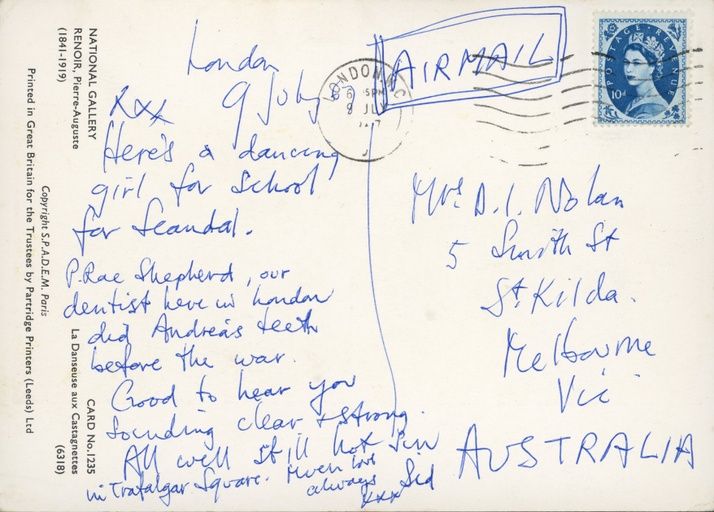 London
9 July
xxx
Here's a dancing
girl for School
for Scandal.
P. Rae Shepherd, our
dentist here in London
did Andrea's teeth
before the war.
Good to hear you
sounding clear & strong.
All well still hot sun
in Trafalgar Square. Much love
always Sid
xxx
AIRMAIL
POSTAGE REVENUE
10d
LONDON W.C.
9 JLY
Mrs D. I. Nolan
5 Smith St
St. Kilda.
Melbourne
Vic
AUSTRALIA
NATIONAL GALLERY
RENOIR, Pierre-Auguste
(1841-1919)
La Danseuse aux Castagnettes
CARD No. 1235
(6318)
Copyright S.P.A.D.E.M. Paris
Printed in Great Britain for the Trustees by Partridge Printers (Leeds) Ltd